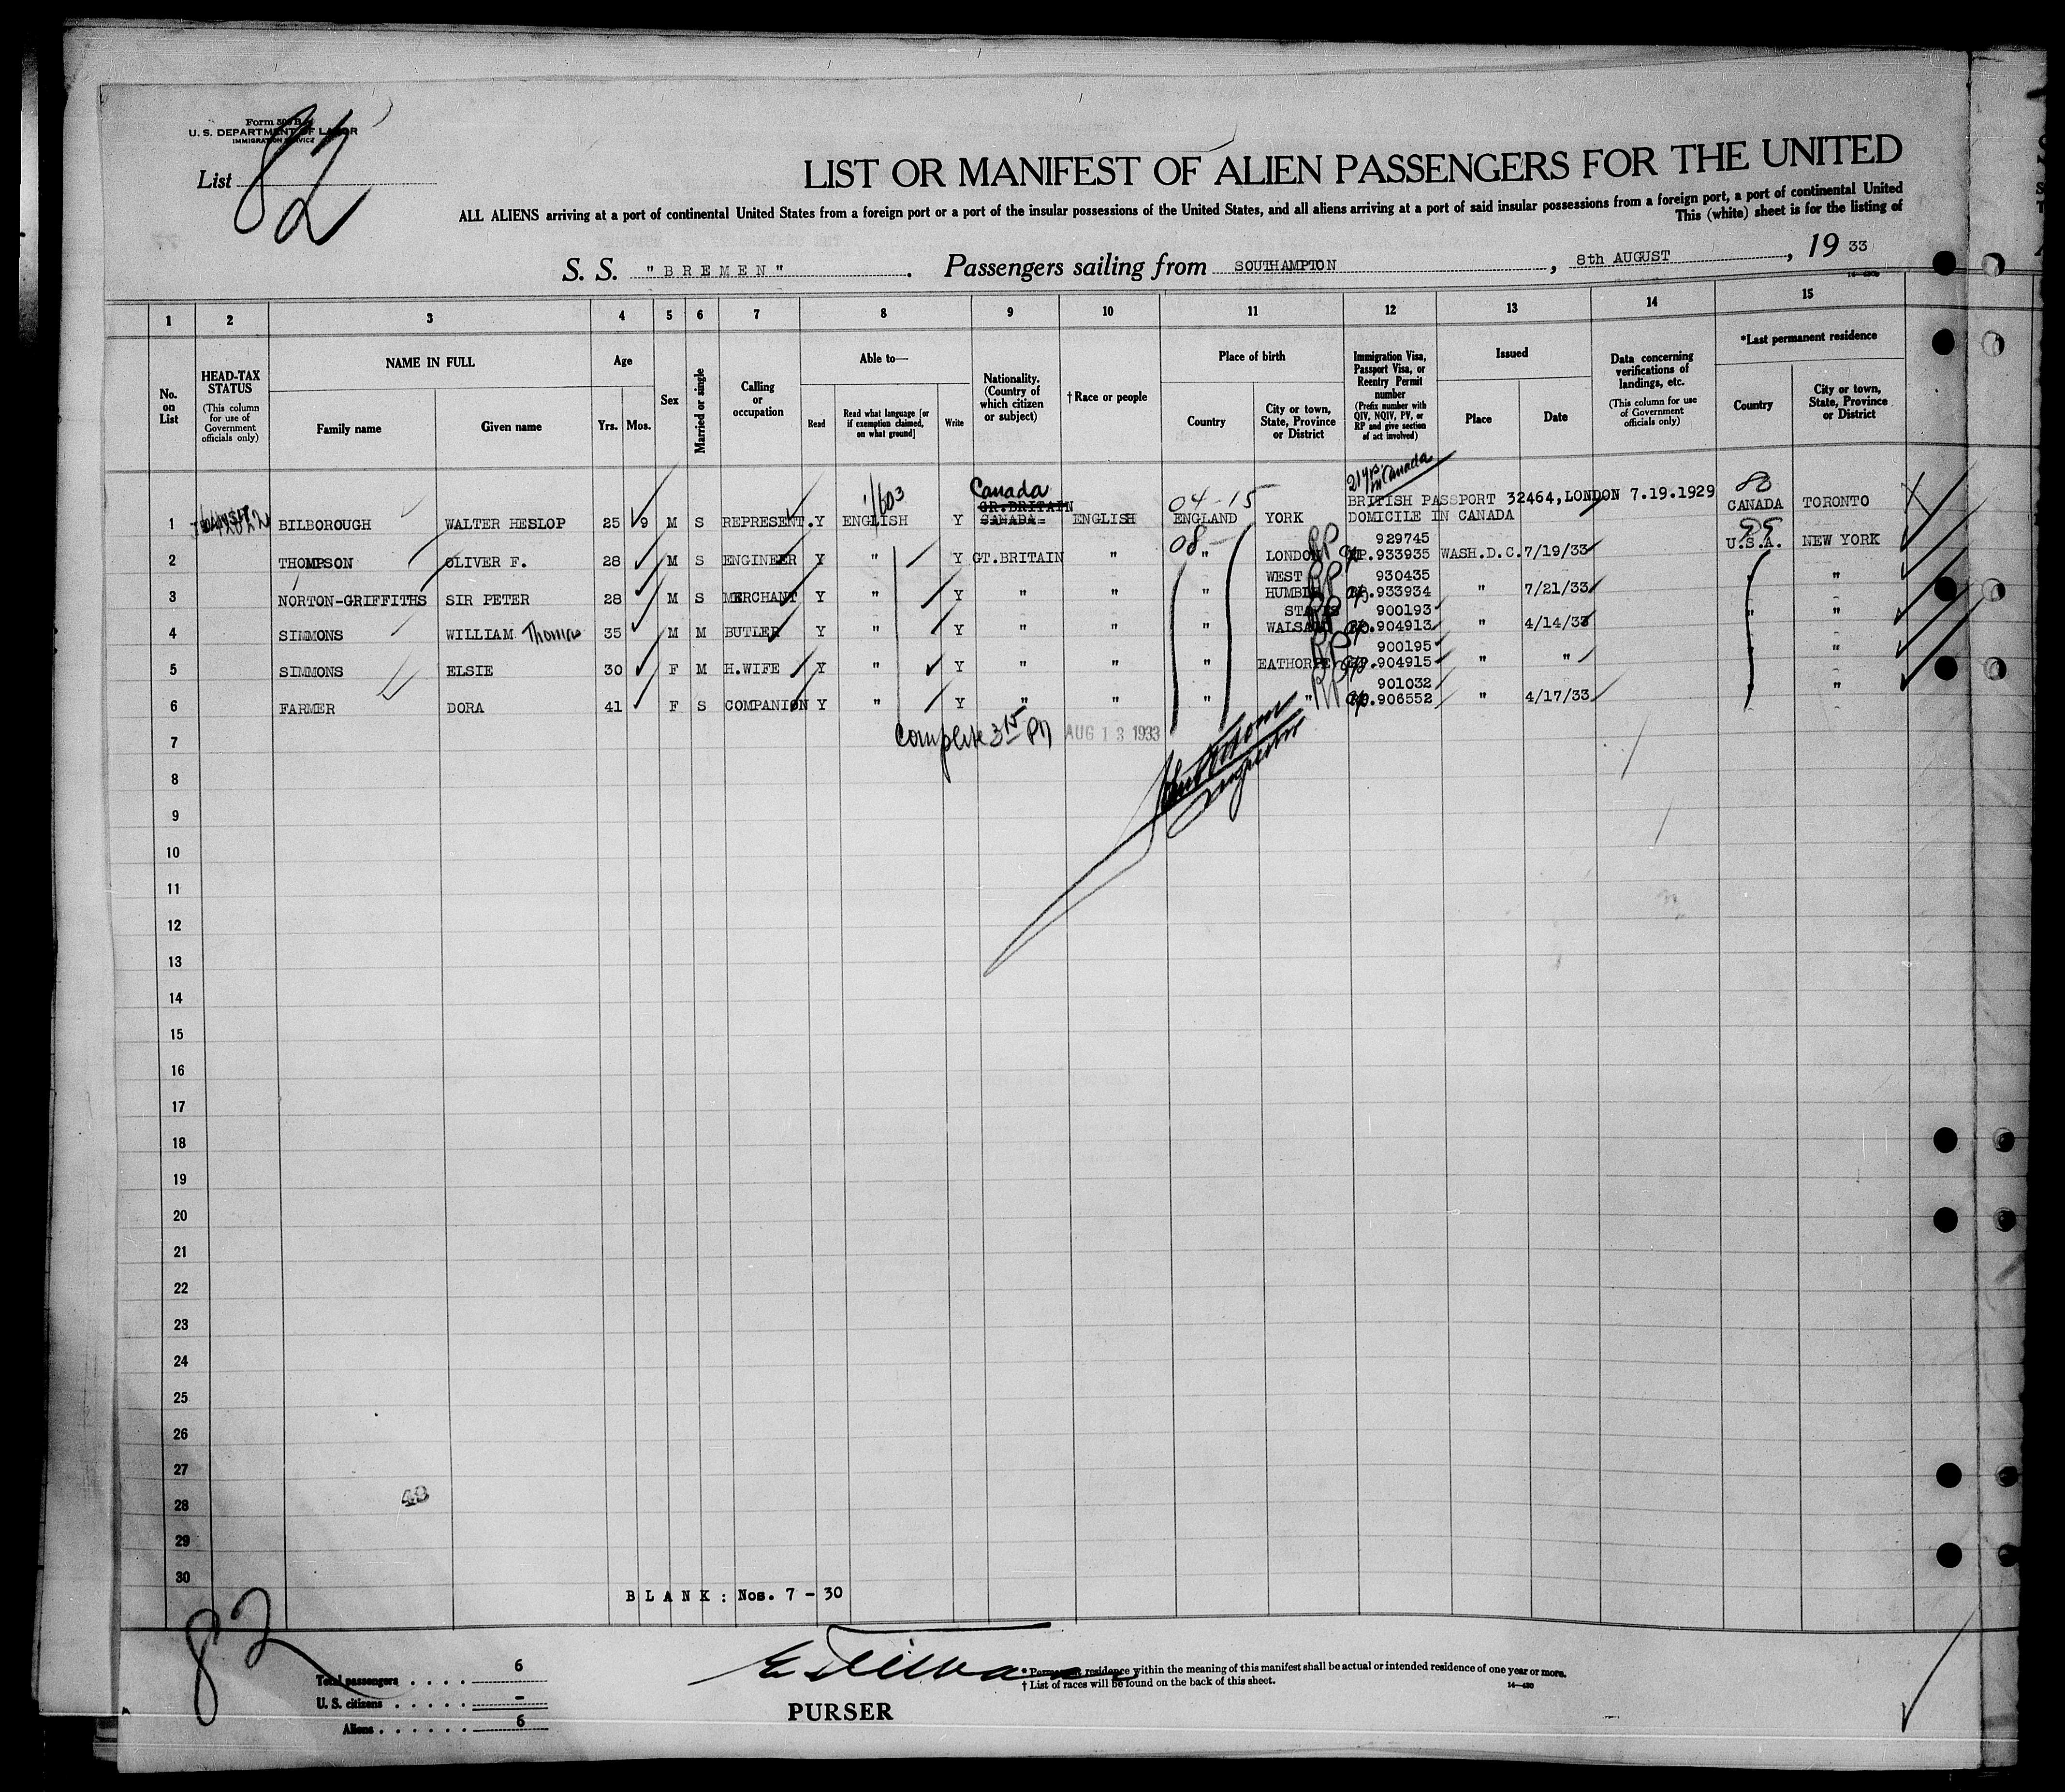 Form 500 B
U. S. DEPARTMENT OF LABOR
IMMIGRATION SERVICE
List 82
LIST OR MANIFEST OF ALIEN PASSENGERS FOR THE UNITED
ALL ALIENS arriving at a port of continental United States from a foreign port or a port of the insular possessions of the United States, and all aliens arriving at a port of said insular possessions from a foreign port, a port of continental United
This (white) sheet is for the listing of
S. S. "BREMEN" . Passengers sailing from SOUTHAMPTON , 8th AUGUST , 19 33
1 2 3 4 5 6 7 8 9 10 11 12 13 14 15
No. on List
HEAD-TAX STATUS (This column for use of Government officials only)
NAME IN FULL
Family name Given name
Age
Yrs. Mos.
Sex
Married or single
Calling or occupation
Able to—
Read Read what language [or if exemption claimed, on what ground] Write
Nationality. (Country of which citizen or subject)
†Race or people
Place of birth
Country City or town, State, Province or District
Immigration Visa, Passport Visa, or Reentry Permit number (Prefix number with QIV, NQIV, PV, or RP and give section of act involved)
Issued
Place Date
Data concerning verifications of landings, etc. (This column for use of Government officials only)
*Last permanent residence
Country City or town, State, Province or District
21 yrs. in Canada
Canada
1 BILBOROUGH WALTER HESLOP 25 9 M S REPRESENT. Y ENGLISH Y GR.BRITAIN CANADA ENGLISH 04-15 ENGLAND YORK BRITISH PASSPORT 32464, LONDON 7.19.1929 DOMICILE IN CANADA 80 CANADA TORONTO
2 THOMPSON OLIVER F. 28 M S ENGINEER Y " Y GT.BRITAIN " 08 " LONDON RP 929745 933935 WASH.D.C. 7/19/33 U.S.A. NEW YORK
3 NORTON-GRIFFITHS SIR PETER 28 M S MERCHANT Y " Y " " " WEST RP 930435 933934 " 7/21/33 "
4 SIMMONS WILLIAM Thomas 35 M M BUTLER Y " Y " " " RP 900193 904913 " 4/14/33 " "
5 SIMMONS ELSIE 30 F M H.WIFE Y " Y " " " EATHORPE RP 900195 904915 " " " "
6 FARMER DORA 41 F S COMPANION Y " Y " " " " RP 901032 906552 " 4/17/33 " "
7 Complete 3 15 PM AUG 13 1933
Inspector
8
9
10
11
12
13
14
15
16
17
18
19
20
21
22
23
24
25
26
27
28
40
29
30
BLANK: Nos. 7 - 30
82
Total passengers . . . . 6
U. S. citizens . . . . . -
Aliens . . . . . . 6
PURSER
* Permanent residence within the meaning of this manifest shall be actual or intended residence of one year or more.
† List of races will be found on the back of this sheet.
14—430